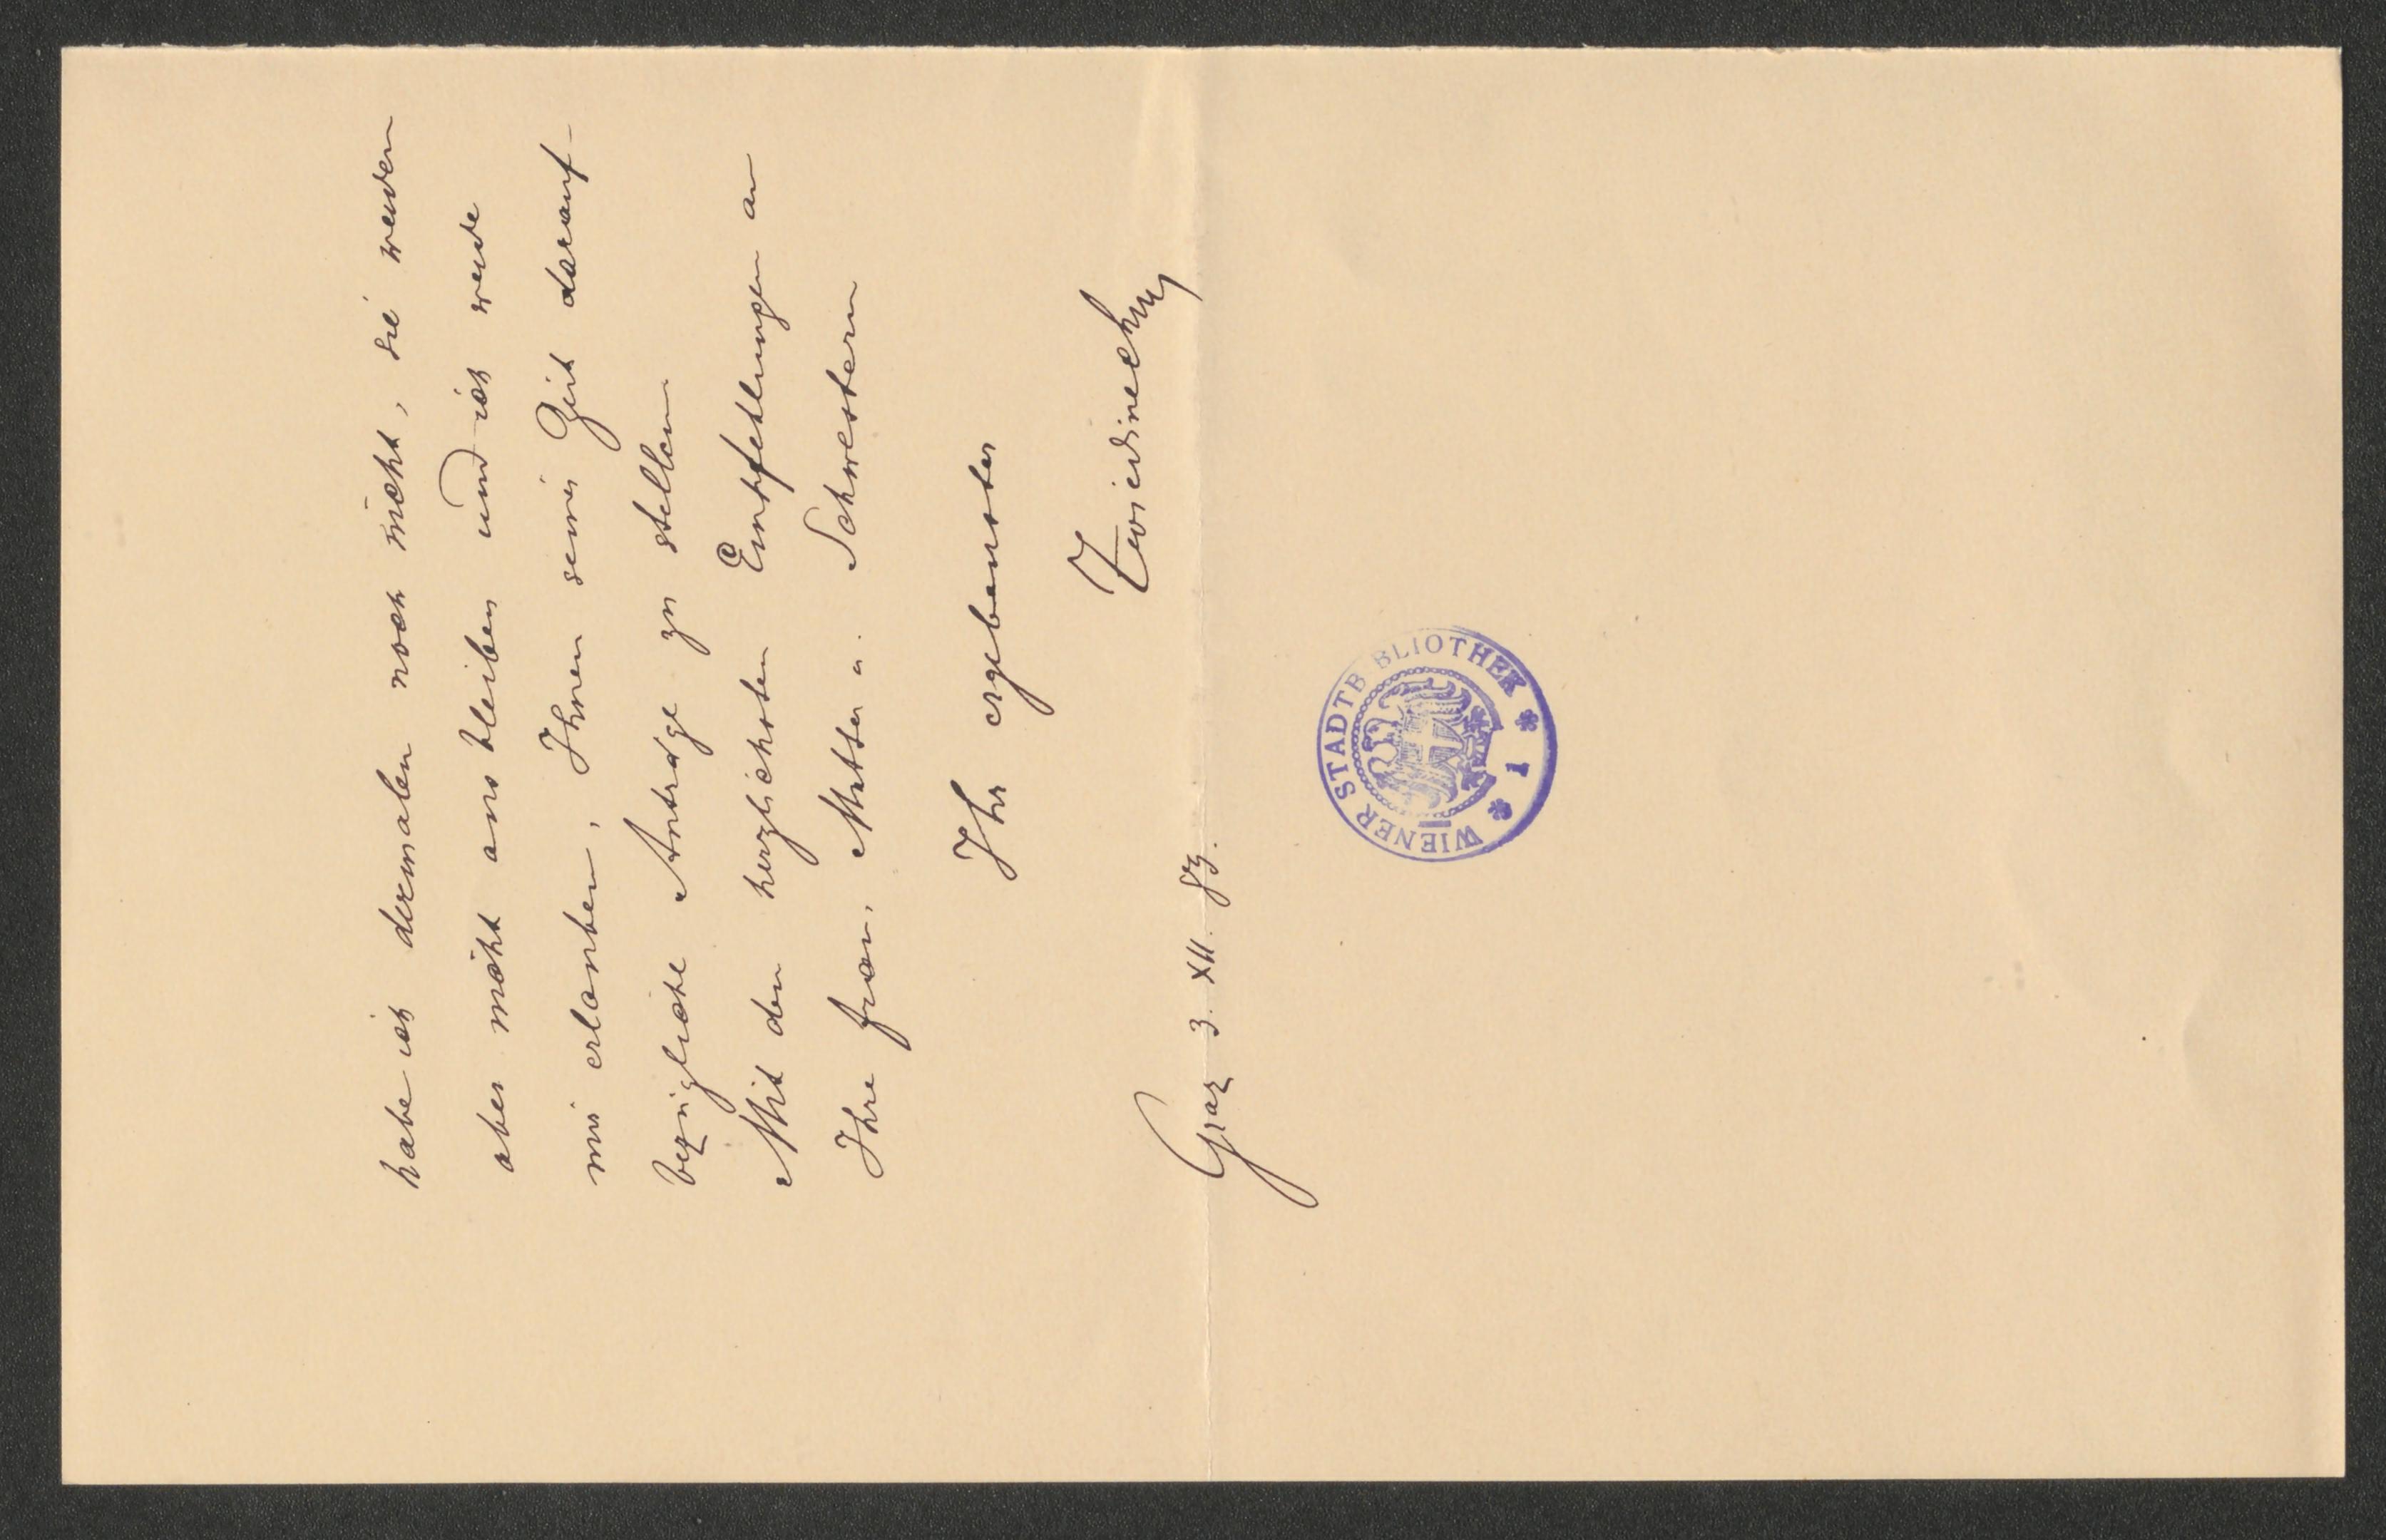 habe ich dermalen noch nicht, sie werden
aber nicht ausbleiben und ich werde
mir erlauben, Ihnen seiner Zeit darauf-
bezügliche Anträge zu stellen
Mit den herzlichsten Empfehlungen an
Ihre Frau, Mutter u. Schwestern
Ihr ergebenster
Zwiedineck
Graz 3. XII. 83.
WIENER STADTBIBLIOTHEK * 1 *